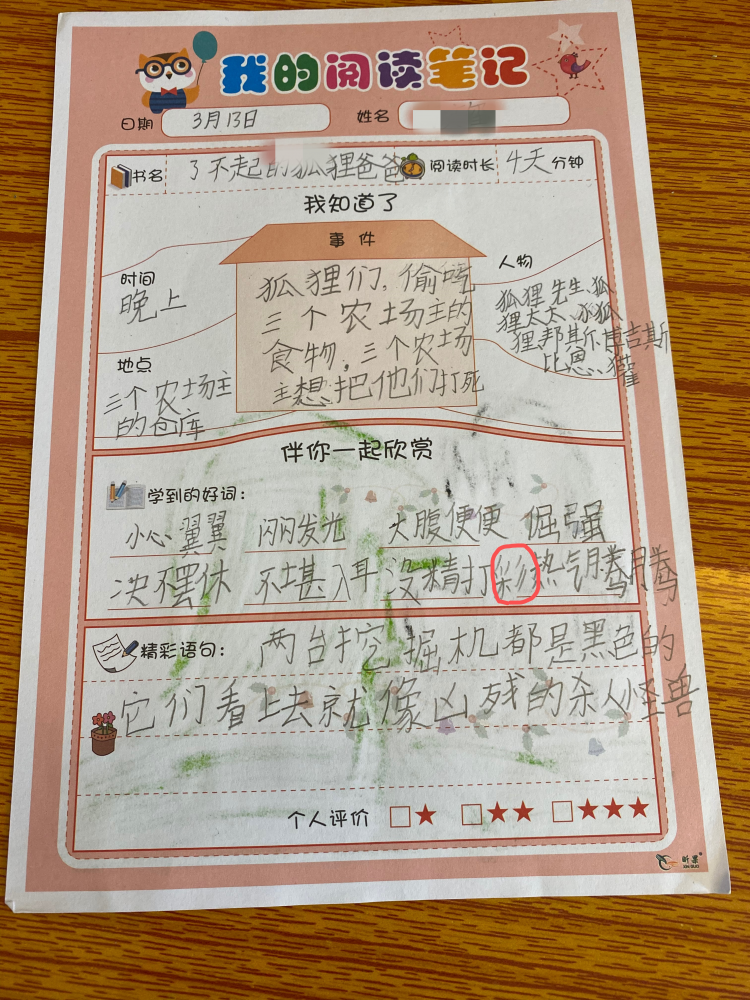 我的阅读笔记
日期 3月13日 姓名
书名 了不起的狐狸爸爸 阅读时长 4天 分钟
我知道了
事件
狐狸们,偷吃
三个农场主的
食物,三个农场
主想把他们打死
时间
晚上
地点
三个农场主
的仓库
人物
狐狸先生、狐
狸太太、小狐
狸邦斯、博吉斯
比恩、獾
伴你一起欣赏
学到的好词:
小心翼翼 闪闪发光 大腹便便 倔强
决不罢休 不堪入耳 没精打彩 热气腾腾
精彩语句: 两台挖掘机都是黑色的
它们看上去就像凶残的杀人怪兽
个人评价 □★ □★★ □★★★
昕果